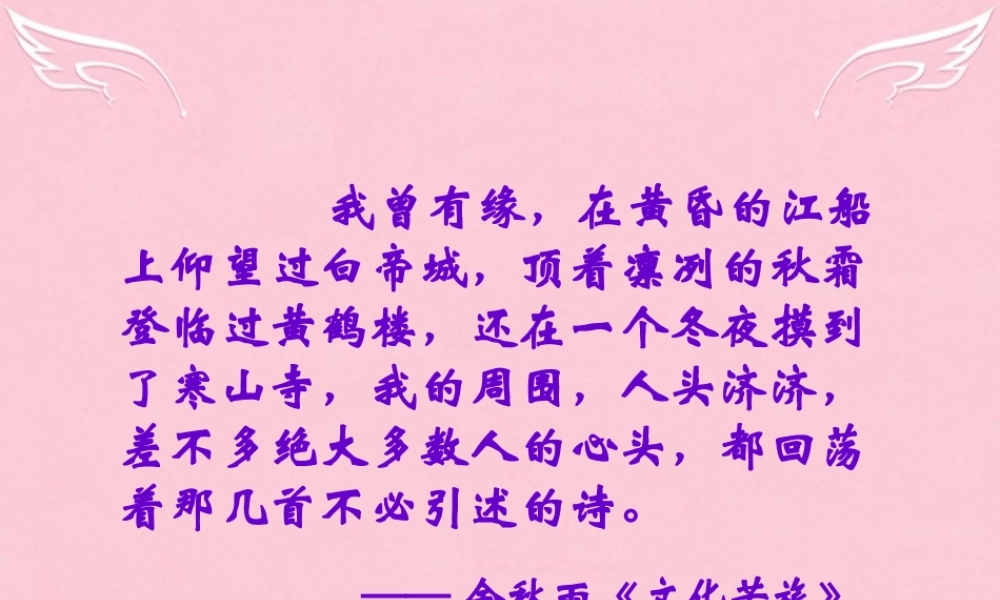 我曾有缘，在黄昏的江船
上仰望过白帝城，顶着凛冽的秋霜
登临过黄鹤楼，还在一个冬夜摸到
了寒山寺，我的周围，人头济济，
差不多绝大多数人的心头，都回荡
着那几首不必引述的诗。
——余秋雨《文化苦旅》